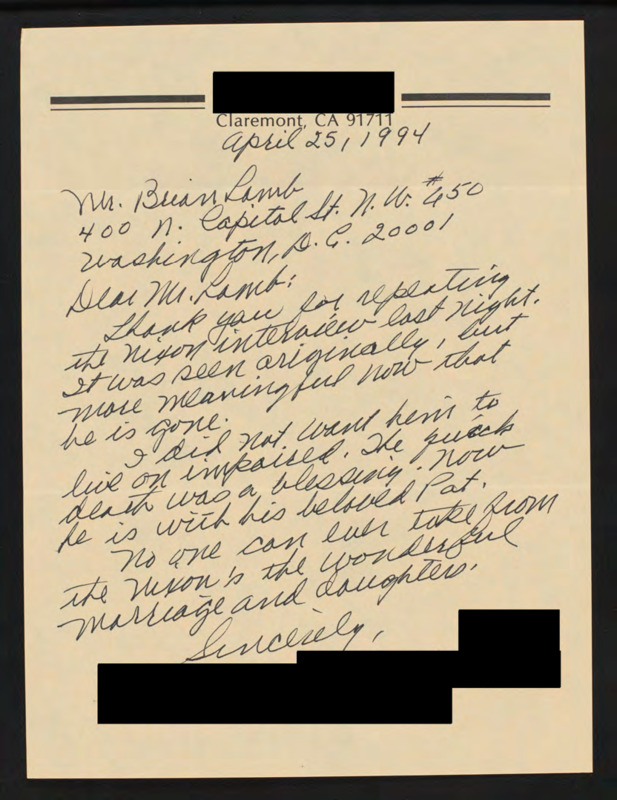 Claremont, CA 91711
April 25, 1994
Mr. Brian Lamb
400 N. Capitol St. N.W. #650
Washington, D.C. 20001
Dear Mr. Lamb:
Thank you for repeating
the Nixon interview last night.
It was seen originally, but
more meaningful now that
he is gone.
I did not want him to
live on impaired. The quick
death was a blessing. Now
he is with his beloved Pat.
No one can ever take from
the Nixon's the wonderful
marriage and daughters.
Sincerely,